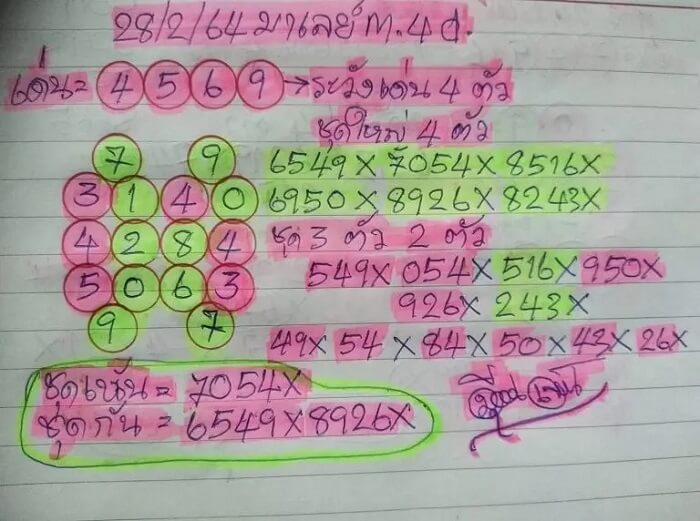 28/2/64 มาเลย์ ท.4 ต.
เด่น= 4 5 6 9 → ระวังเด่น 4 ตัว
ชุดใหญ่ 4 ตัว
7 9 6549x 7054x 8516x
3 1 4 0 6950x 8926x 8243x
4 2 8 4 ชุด 3 ตัว 2 ตัว
5 0 6 3 549x 054x 516x 950x
9 7 926x 243x
49x 54x 84x 50x 43x 26x
ชุดเน้น = 7054x
ชุดกัน = 6549x 8926x